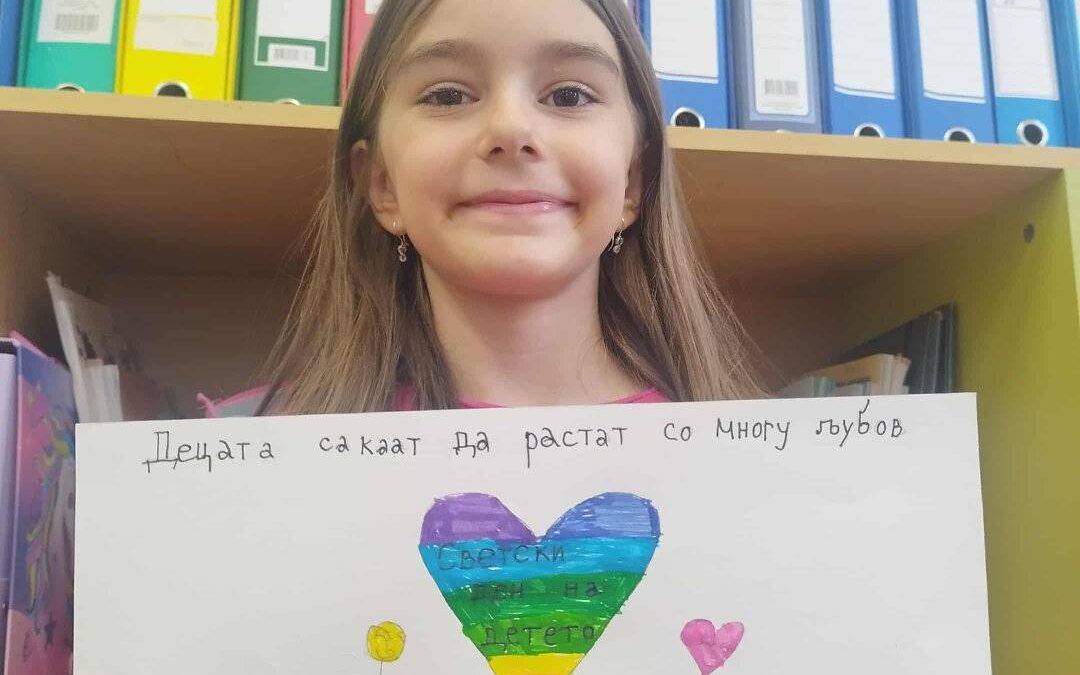 Децата сакаат да растат со многу љубов
Светски
ден на
детето